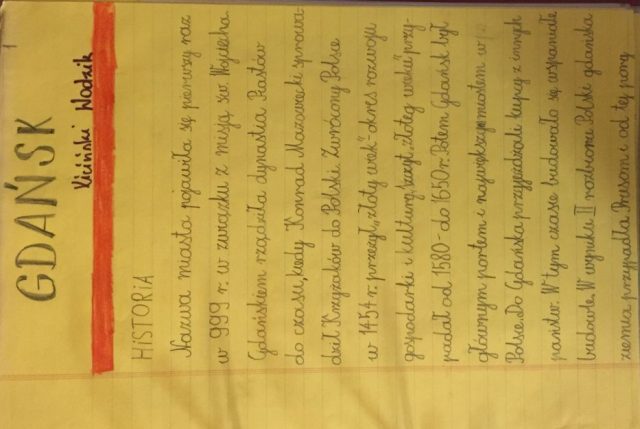 1
GDAŃSK
Kiciński Nodzik
HiSTORiA
Nazwa miasta pojawiła się pierwszy raz
w 999 r. w związku z misją św Wojciecha.
Gdańskiem rządziła dynastia Piastów
do czasu, kiedy Konrad Mazowiecki sprowa-
dził Krzyżaków do Polski. Zwrócony Polsce
w 1454 r. przeżył „złoty wiek"-okres rozwoju
gospodarki i kultury, szczyt „złotego wieku" przy-
padał od 1580-do 1650 r. Potem Gdańsk był
głównym portem i największym miastem w
Polsce. Do Gdańska przyjeżdżali kupcy z innych
państw. W tym czasie budowało się wspaniałe
budowle. W wyniku II rozbioru Polski gdańska
ziemia przypadła Prusom i od tej pory